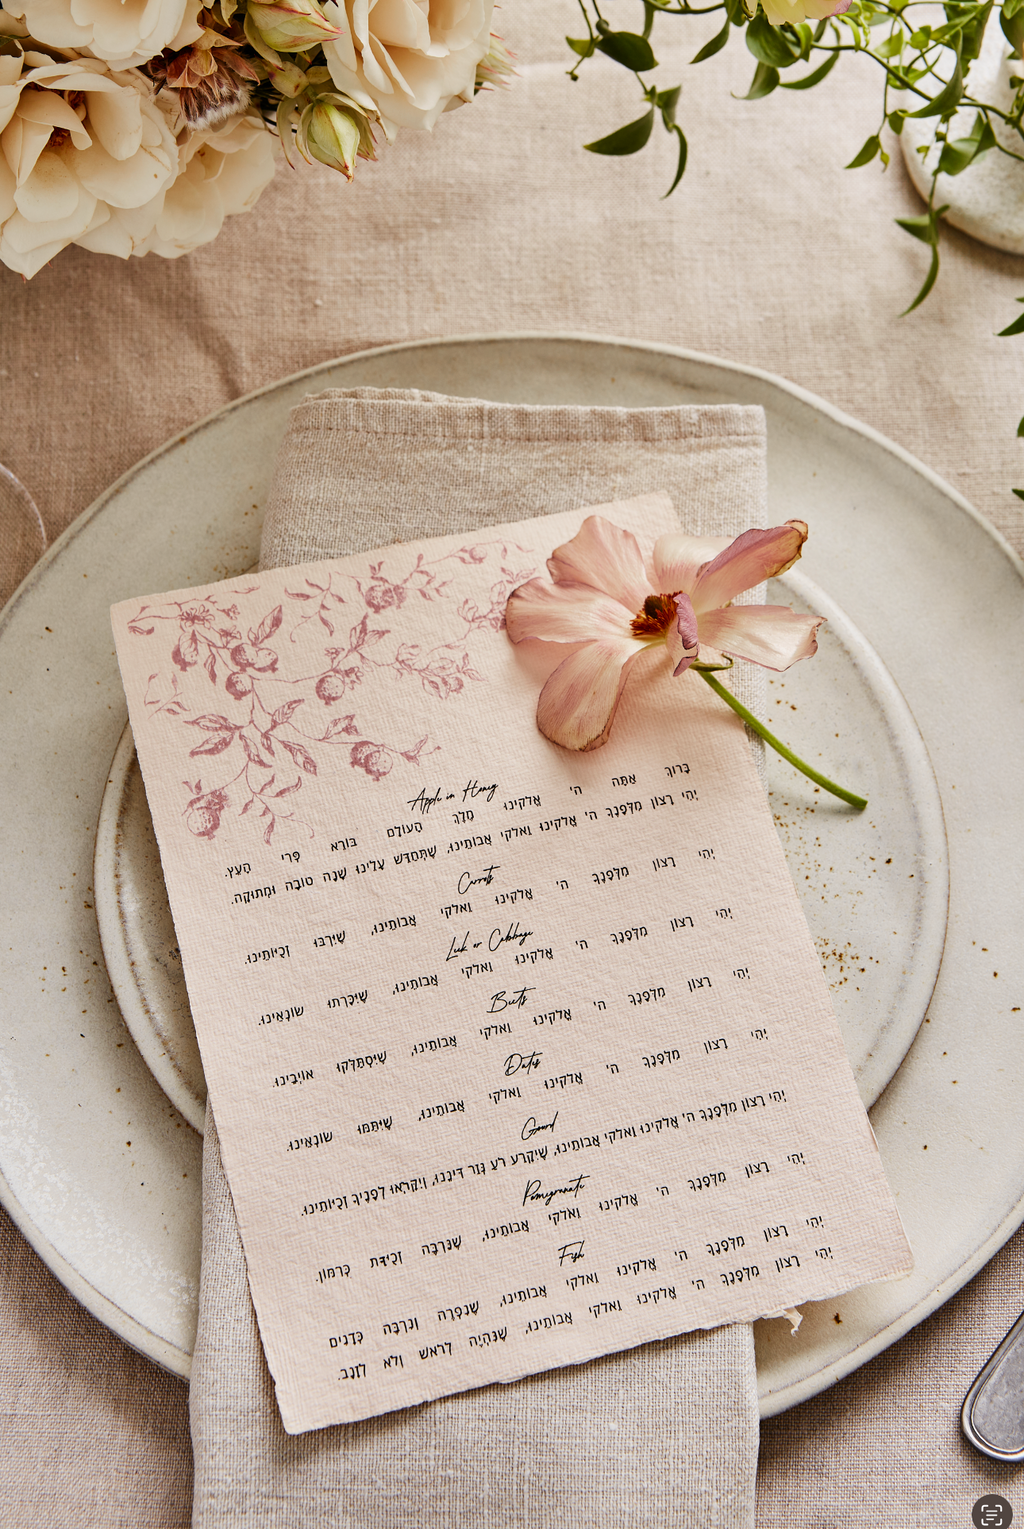 Apple in Honey
בָּרוּךְ אַתָּה ה' אֱלֹקֵינוּ מֶלֶךְ הָעוֹלָם בּוֹרֵא פְּרִי הָעֵץ.
יְהִי רָצוֹן מִלְּפָנֶךָ ה' אֱלֹקֵינוּ וֵאלֹקֵי אֲבוֹתֵינוּ, שֶׁתְּחַדֵּשׁ עָלֵינוּ שָׁנָה טוֹבָה וּמְתוּקָה.
Carrots
יְהִי רָצוֹן מִלְּפָנֶךָ ה' אֱלֹקֵינוּ וֵאלֹקֵי אֲבוֹתֵינוּ, שֶׁיִּרְבּוּ זְכֻיּוֹתֵינוּ.
Leek or Cabbage
יְהִי רָצוֹן מִלְּפָנֶךָ ה' אֱלֹקֵינוּ וֵאלֹקֵי אֲבוֹתֵינוּ, שֶׁיִּכָּרְתוּ שׂוֹנְאֵינוּ.
Beets
יְהִי רָצוֹן מִלְּפָנֶךָ ה' אֱלֹקֵינוּ וֵאלֹקֵי אֲבוֹתֵינוּ, שֶׁיִּסְתַּלְּקוּ אוֹיְבֵינוּ.
Dates
יְהִי רָצוֹן מִלְּפָנֶךָ ה' אֱלֹקֵינוּ וֵאלֹקֵי אֲבוֹתֵינוּ, שֶׁיִּתַּמּוּ שׂוֹנְאֵינוּ.
Gourd
יְהִי רָצוֹן מִלְּפָנֶךָ ה' אֱלֹקֵינוּ וֵאלֹקֵי אֲבוֹתֵינוּ, שֶׁיִּקָּרַע רֹעַ גְּזַר דִּינֵנוּ, וְיִקָּרְאוּ לְפָנֶיךָ זְכֻיּוֹתֵינוּ.
Pomegranate
יְהִי רָצוֹן מִלְּפָנֶךָ ה' אֱלֹקֵינוּ וֵאלֹקֵי אֲבוֹתֵינוּ, שֶׁנִּרְבֶּה זְכֻיּוֹת כְּרִמּוֹן.
Fish
יְהִי רָצוֹן מִלְּפָנֶךָ ה' אֱלֹקֵינוּ וֵאלֹקֵי אֲבוֹתֵינוּ, שֶׁנִּפְרֶה וְנִרְבֶּה כְּדָגִים
יְהִי רָצוֹן מִלְּפָנֶךָ ה' אֱלֹקֵינוּ וֵאלֹקֵי אֲבוֹתֵינוּ, שֶׁנִּהְיֶה לְרֹאשׁ וְלֹא לְזָנָב.